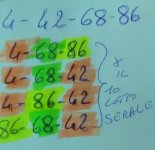 4-42-68-86
4-68-86
4-68-42
4-86-42
86-68-42
X
IL
10
LOTTO
SERALE